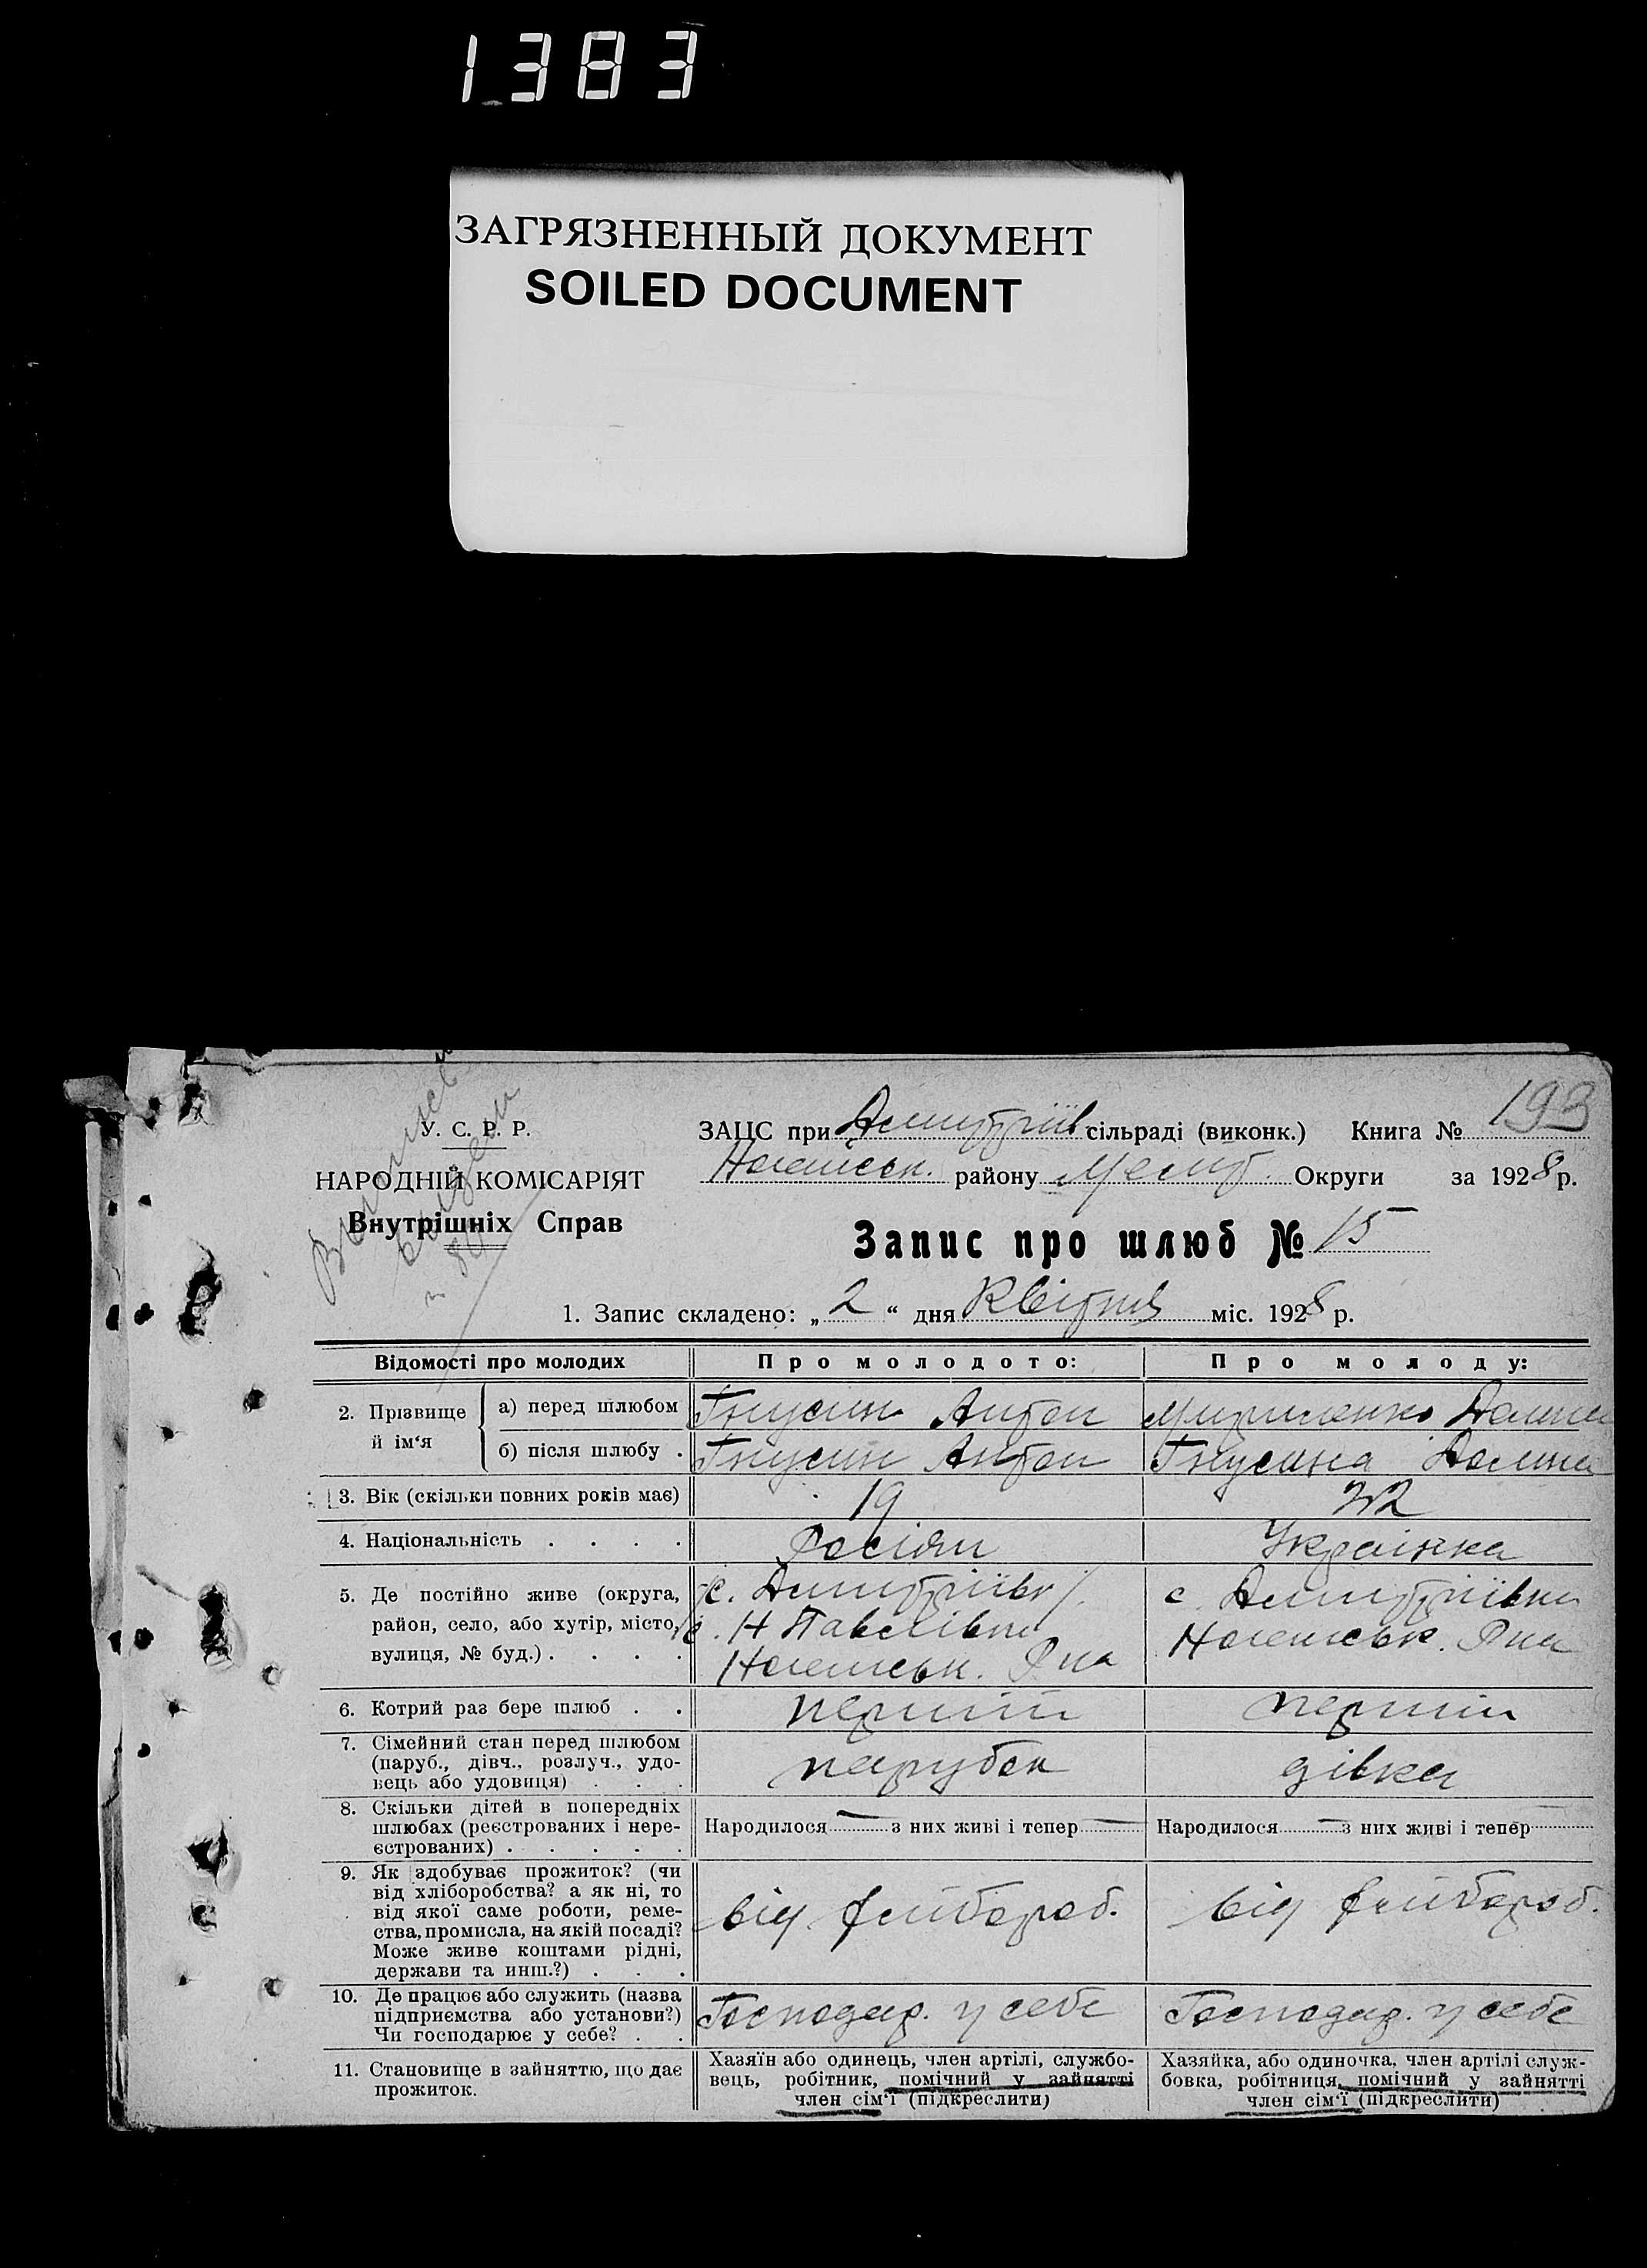 1383
ЗАГРЯЗНЕННЫЙ ДОКУМЕНТ
SOILED DOCUMENT
193
У. С. Р. Р.
НАРОДНІЙ КОМІСАРІЯТ
Внутрішніх Справ
ЗАЦС при Дмитріїв сільраді (виконк.) Книга №
Ногайськ. району Меліт. Округи за 1928 р.
Запис про шлюб № 15
1. Запис складено: „ 2 “ дня Квітня міс. 1928 р.
Відомості про молодих
Про молодого:
Про молоду:
2. Прізвище й ім‘я
а) перед шлюбом
Гнусин Антон
Домна
б) після шлюбу .
Гнусин Антон
Гнусина Домна
3. Вік (скільки повних років має)
19
4. Національність . . . .
Росіян
Українка
5. Де постійно живе (округа,
район, село, або хутір, місто,
вулиця, № буд.) . . . .
с. Дмитріївк
с. Н Павлівки
Ногайськ. Р на
с. Дмитріївки
Ногайськ. Р на
6. Котрий раз бере шлюб . .
перший
перший
7. Сімейний стан перед шлюбом
(паруб., дівч., розлуч., удо-
вець або удовиця) . . .
парубок
дівка
8. Скільки дітей в попередніх
шлюбах (реєстрованих і нере-
єстрованих) . . . . .
Народилося — з них живі і тепер —
Народилося — з них живі і тепер
9. Як здобуває прожиток? (чи
від хліборобства? а як ні, то
від якої саме роботи, реме-
ства, промисла, на якій посаді?
Може живе коштами рідні,
держави та инш.?) . . .
від хлібороб.
від хлібороб.
10. Де працює або служить (назва
підприємства або установи?)
Чи господарює у себе? . .
Господар. у себе
Господар. у себе
11. Становище в зайняттю, що дає
прожиток.
Хазяїн або одинець, член артілі, службо-
вець, робітник, помічний у зайнятті
член сім‘ї (підкреслити)
Хазяйка, або одиночка, член артілі служ-
бовка, робітниця, помічний у зайнятті
член сім‘ї (підкреслити)